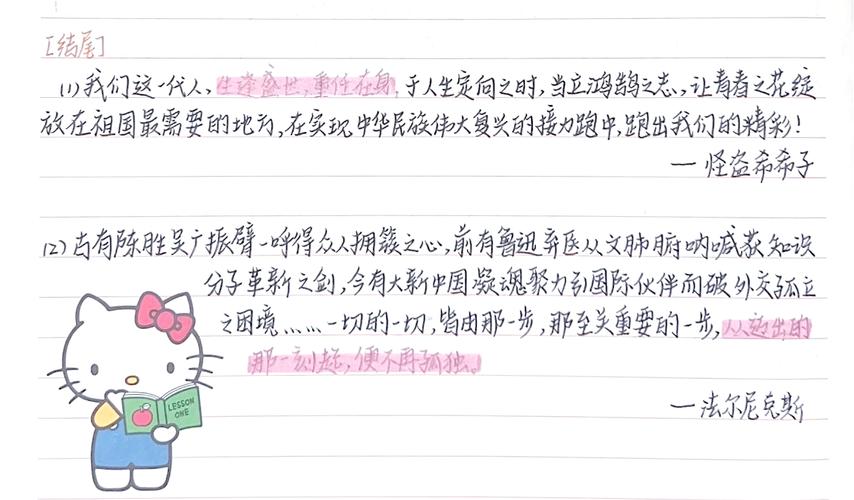 [结尾]
(1)我们这一代人,生逢盛世,重任在身,于人生定向之时,当立鸿鹄之志,让青春之花绽
放在祖国最需要的地方,在实现中华民族伟大复兴的接力跑中,跑出我们的精彩!
一怪盗希希子
(2)古有陈胜吴广振臂一呼得众人拥簇之心,前有鲁迅弃医从文肺腑呐喊获知识
分子革新之剑,今有大新中国凝魂聚力引国际伙伴而破外交孤立
之困境……一切的一切,皆由那一步,那至关重要的一步,从迈出的
那一刻起,便不再孤独。
LESSON
ONE
一法尔尼克斯